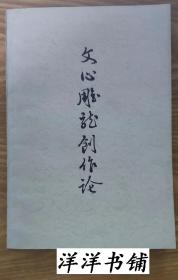 文心雕龍創作论
洋洋书铺